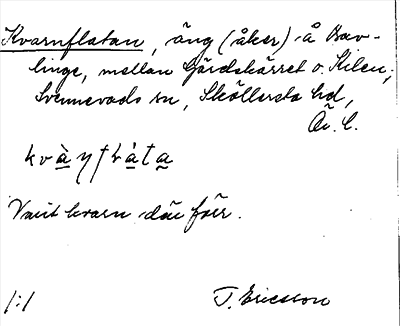 Kvarnflatan, äng (åker) å Bav-
linge, mellan Gärdskärret o. Kilen,
Svennevads sn, Sköllersta hd,
Ör. l.
Varit kvarn där förr.
1:1 T. Ericsson